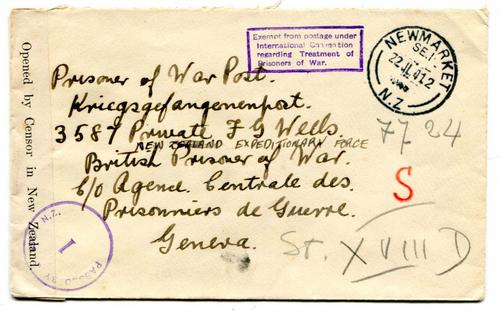 Exempt from postage under
International Convention
regarding Treatment of
Prisoners of War.
NEWMARKET
22 JL 41
N.Z.
Prisoner of War Post.
Kriegsgefangenenpost.
3587 Private F G Wells.
NEW ZEALAND EXPEDITIONARY FORCE
British Prisoner of War.
C/o Agence Centrale des
Prisonniers de Guerre.
Geneva.
77 24
S
St. XVIII D
Opened by Censor in New Zealand.
N.Z.
1
PASSED BY